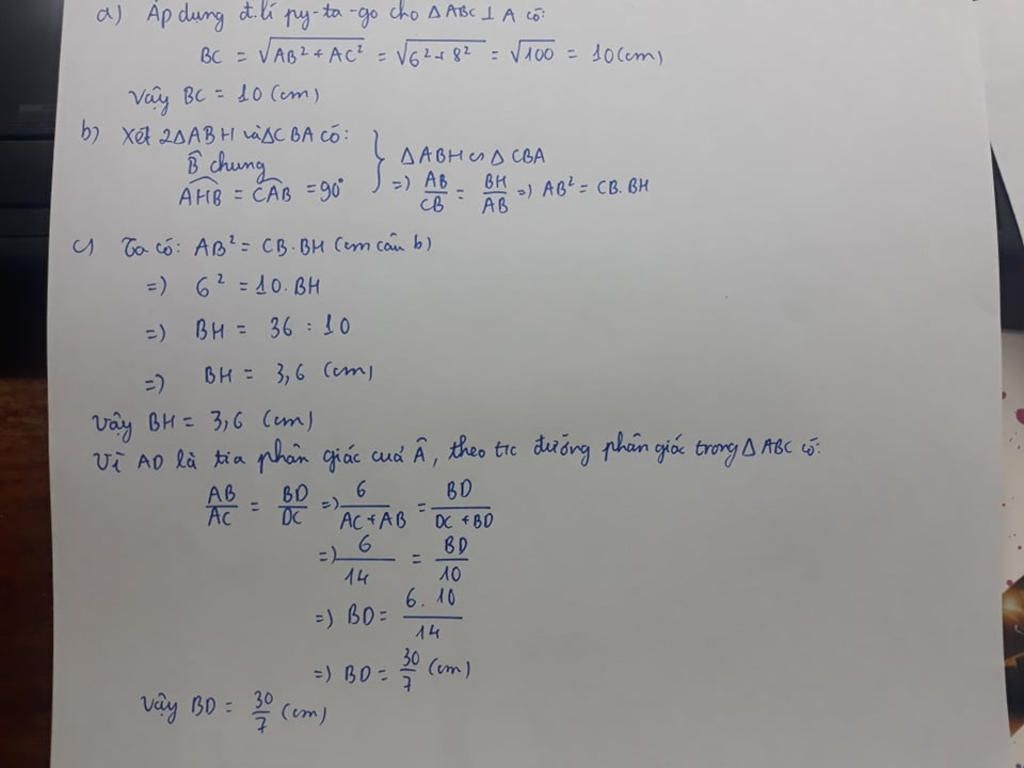 a) Áp dụng đ.lí py-ta-go cho △ABC ⊥ A có:
BC = √AB² + AC² = √6² + 8² = √100 = 10 (cm)
Vậy BC = 10 (cm)
b) Xét 2△ABH và △CBA có:
B̂ chung
AHB = CAB = 90°
} △ABH ∽ △CBA
=) AB/CB = BH/AB =) AB² = CB.BH
c) Ta có: AB² = CB.BH (cm câu b)
=) 6² = 10.BH
=) BH = 36 : 10
=) BH = 3,6 (cm)
Vậy BH = 3,6 (cm)
Vì AD là tia phân giác cuả Â, theo t/c đường phân giác trong △ABC có:
AB/AC = BD/DC =) 6/AC + AB = BD/DC + BD
=) 6/14 = BD/10
=) BD = 6.10/14
=) BD = 30/7 (cm)
Vậy BD = 30/7 (cm)